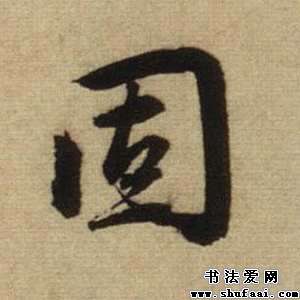 固
书法爱网
www.shufaai.com